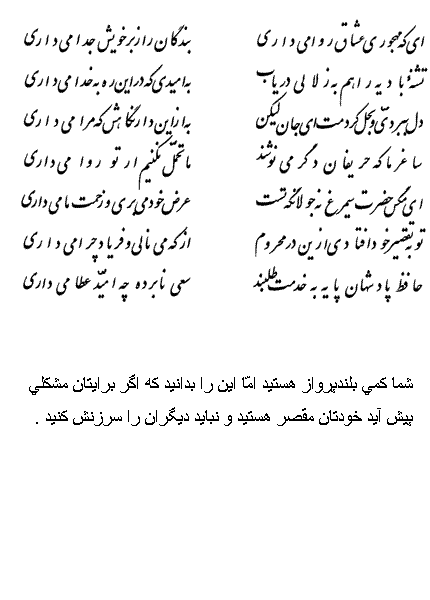 ای که مهجوری عشاق روا می داری بندگان را ز بر خویش جدا می داری
تشنهٔ بادیه را هم به زلالی دریاب به امیدی که در این ره به خدا می داری
دل ببردیّ و بحل کردمت ای جان لیکن به از این دار نگاهش که مرا می داری
ساغر ما که حریفان دگر می نوشند ما تحمّل نکنیم ار تو روا می داری
ای مگس حضرت سیمرغ نه جولانگه تست عرض خود می بری و زحمت ما می داری
تو به تقصیر خود افتادی ازین در محروم از که می نالی و فریاد چرا می داری
حافظ پادشهان پایه به خدمت طلبند سعی نابرده چه امیّد عطا می داری
شما كمي بلندپرواز هستيد امّا اين را بدانيد كه اگر برايتان مشكلي
پيش آيد خودتان مقصر هستيد و نبايد ديگران را سرزنش كنيد .